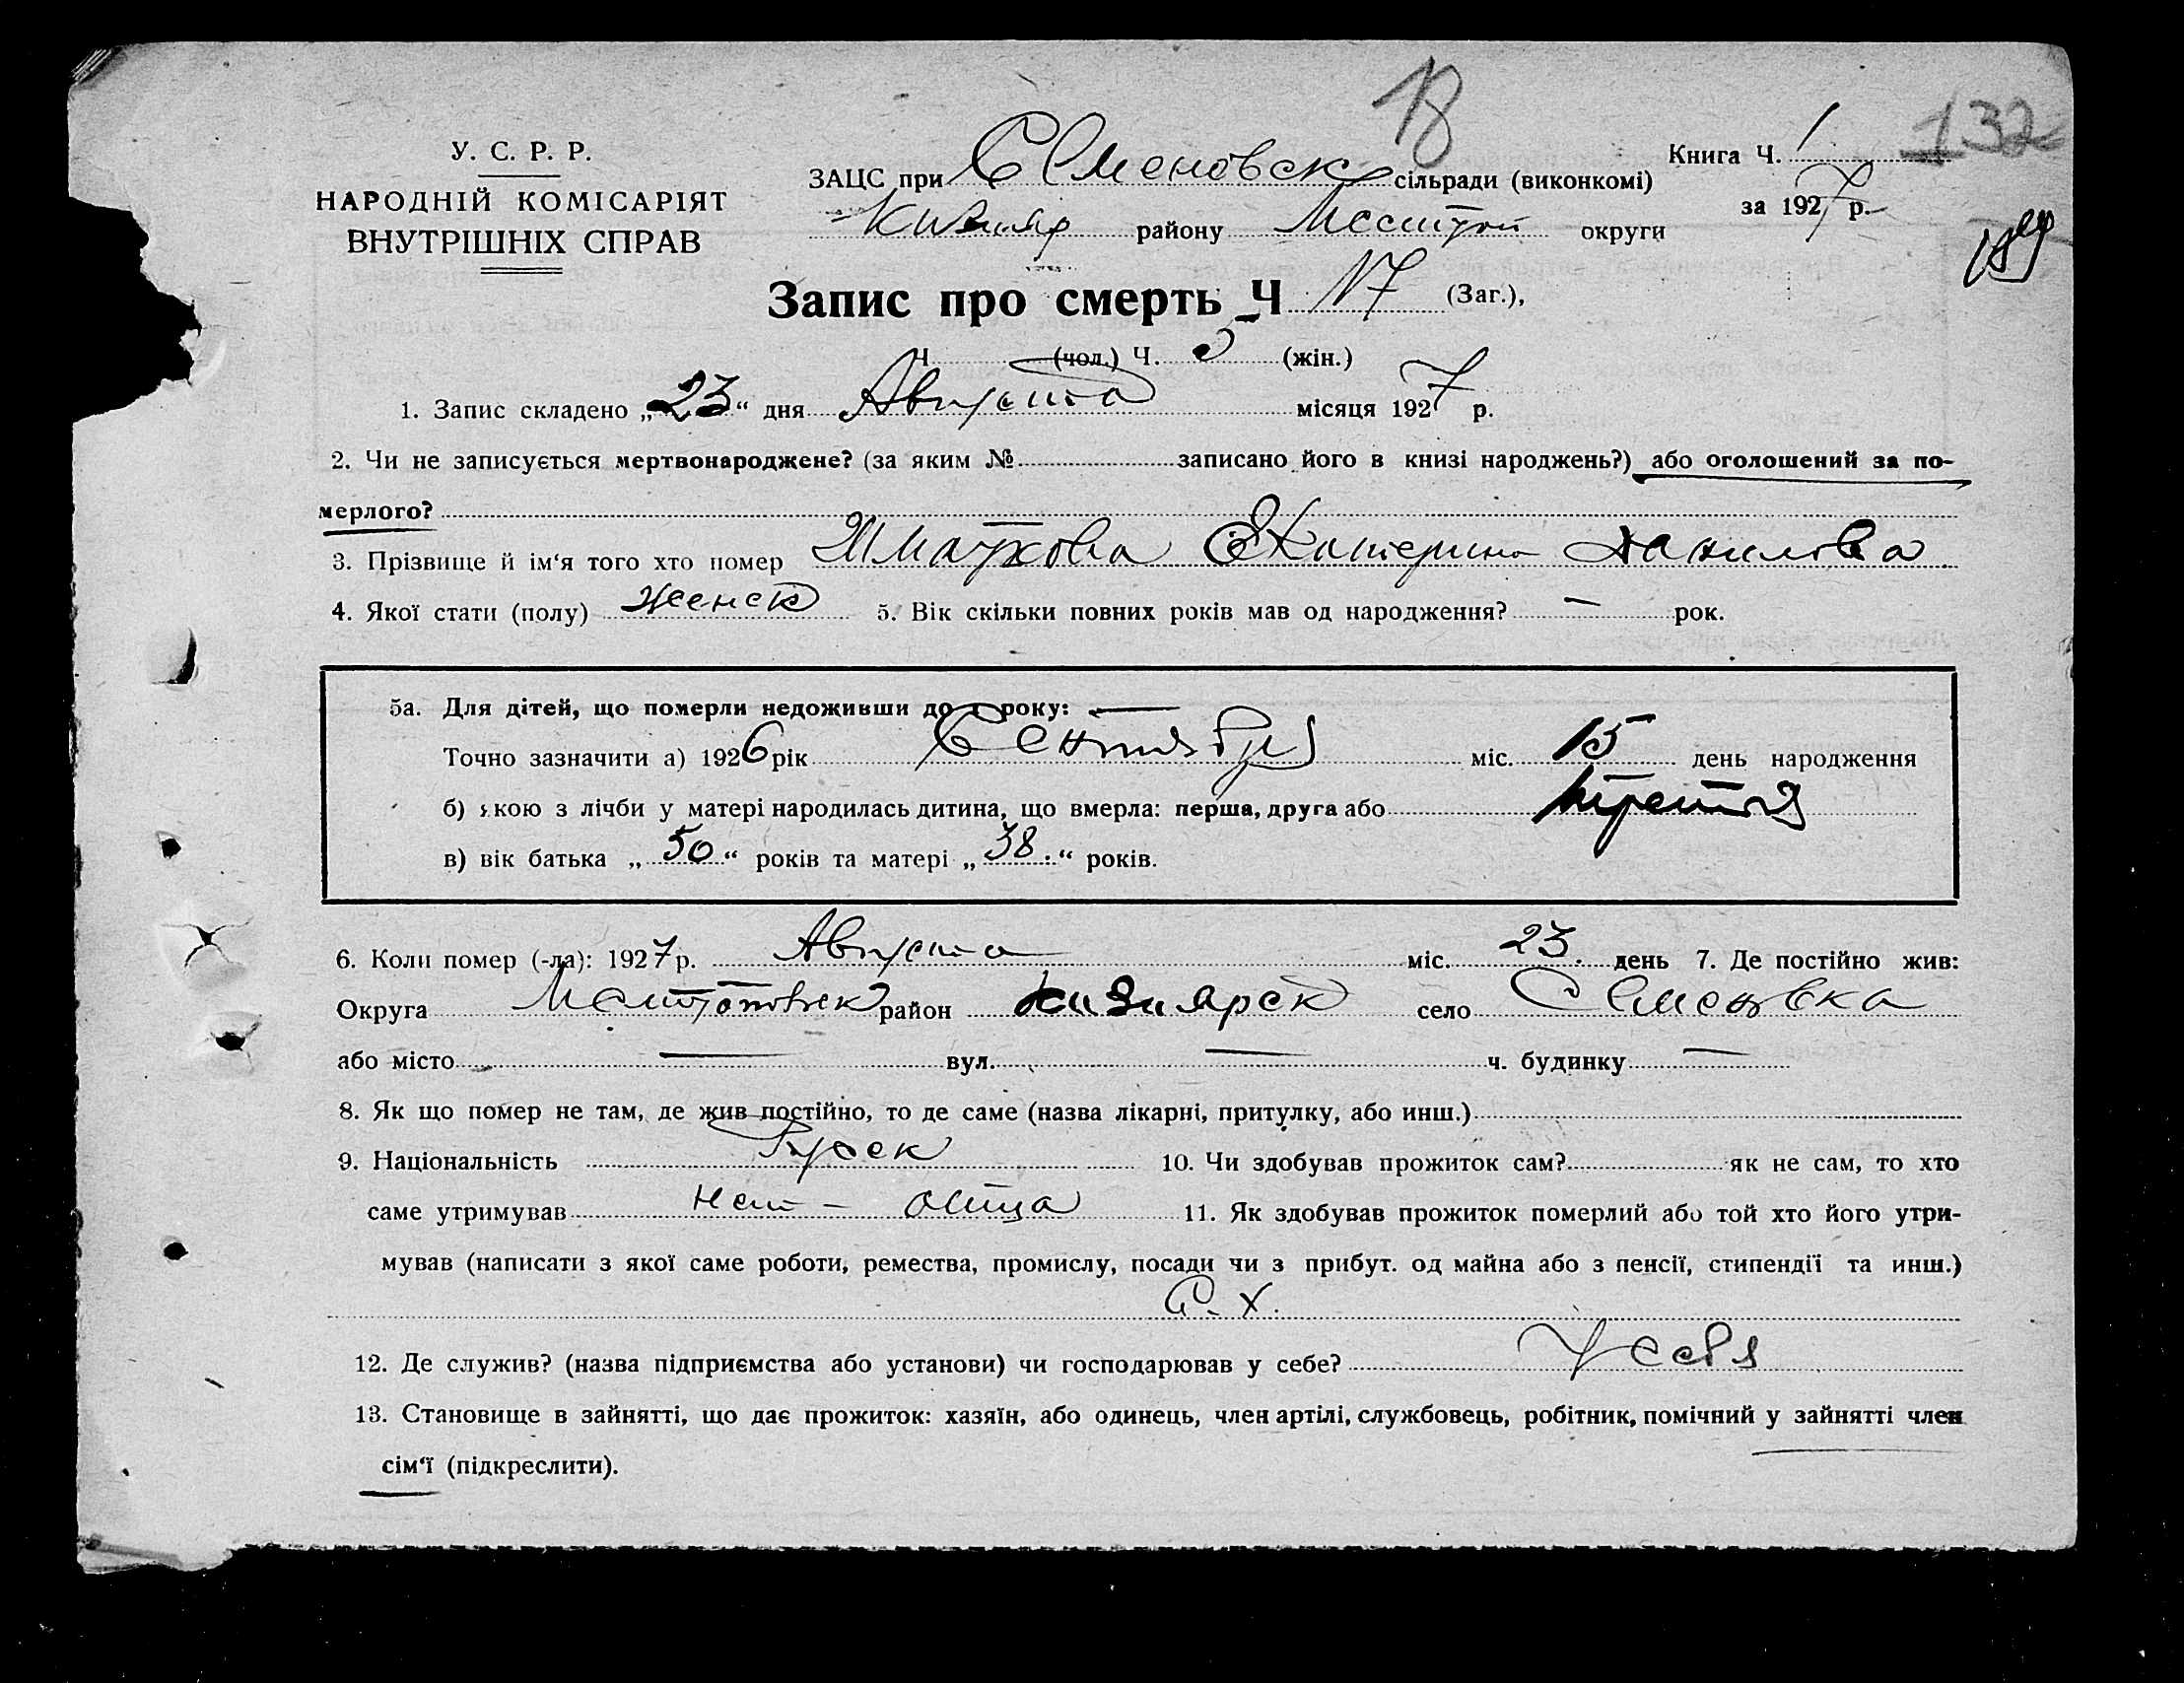 132
У. С. Р. Р.
НАРОДНІЙ КОМІСАРІЯТ
ВНУТРІШНІХ СПРАВ
Книга Ч. 1
за 1927 р.
ЗАЦС при Семеновск сільради (виконкомі)
району округи
Запис про смерть Ч 17 (Заг.),
Ч (чол.) Ч. (жін.)
1. Запис складено „23“ дня Августа місяця 1927 р.
2. Чи не записується мертвонароджене? (за яким № записано його в книзі народжень?) або оголошений за по-
мерлого?
3. Прізвище й ім‘я того хто помер Шматкова Екатерина Данилова
4. Якої стати (полу) Женск 5. Вік скільки повних років мав од народження? — рок.
5а. Для дітей, що померли недоживши до 1 року:
Точно зазначити а) 1926 рік Сентября міс. 15 день народження
б) якою з лічби у матері народилась дитина, що вмерла: перша, друга або третья
в) вік батька „50“ років та матері „38.“ років.
6. Коли помер (-ла): 1927 р. Августа міс. 23. день 7. Де постійно жив:
Округа район Кизиярск село Семеновка
або місто — вул. — ч. будинку —
8. Як що помер не там, де жив постійно, то де саме (назва лікарні, притулку, або инш.)
9. Національність Руск 10. Чи здобував прожиток сам? як не сам, то хто
саме утримував нет – отца 11. Як здобував прожиток померлий або той хто його утри-
мував (написати з якої саме роботи, ремества, промислу, посади чи з прибут. од майна або з пенсії, стипендії та инш.)
С. Х.
12. Де служив? (назва підприємства або установи) чи господарював у себе? У себя
13. Становище в зайнятті, що дає прожиток: хазяїн, або одинець, член артілі, службовець, робітник, помічний у зайнятті член
сім‘ї (підкреслити).